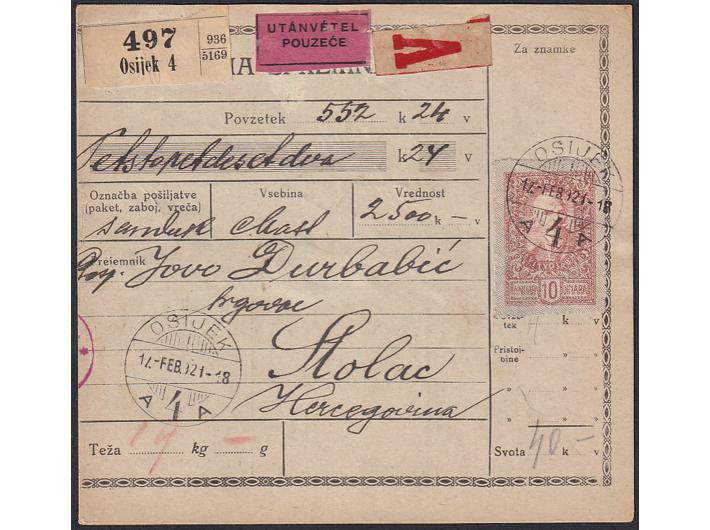 497 936 5169
Osijek 4
UTÁNVÉTEL
POUZEĆE
V
Za znamke
Povzetek 552 k 24 v
Petstopetdesetdva k 24 v
Označba pošiljatve
(paket, zaboj, vreča)
Vsebina
Vrednost
sanduk
2500 k — v
Prejemnik Jovo Durbabić
trgovac
Stolac
Hercegovina
OSIJEK
17.-FEB.921-18
A 4 A
Teža 17 — kg g
OSIJEK
17.-FEB.921-18
A 4 A
10
k v
Pristoj-
bine " "
" "
" "
Svota 40.— k v